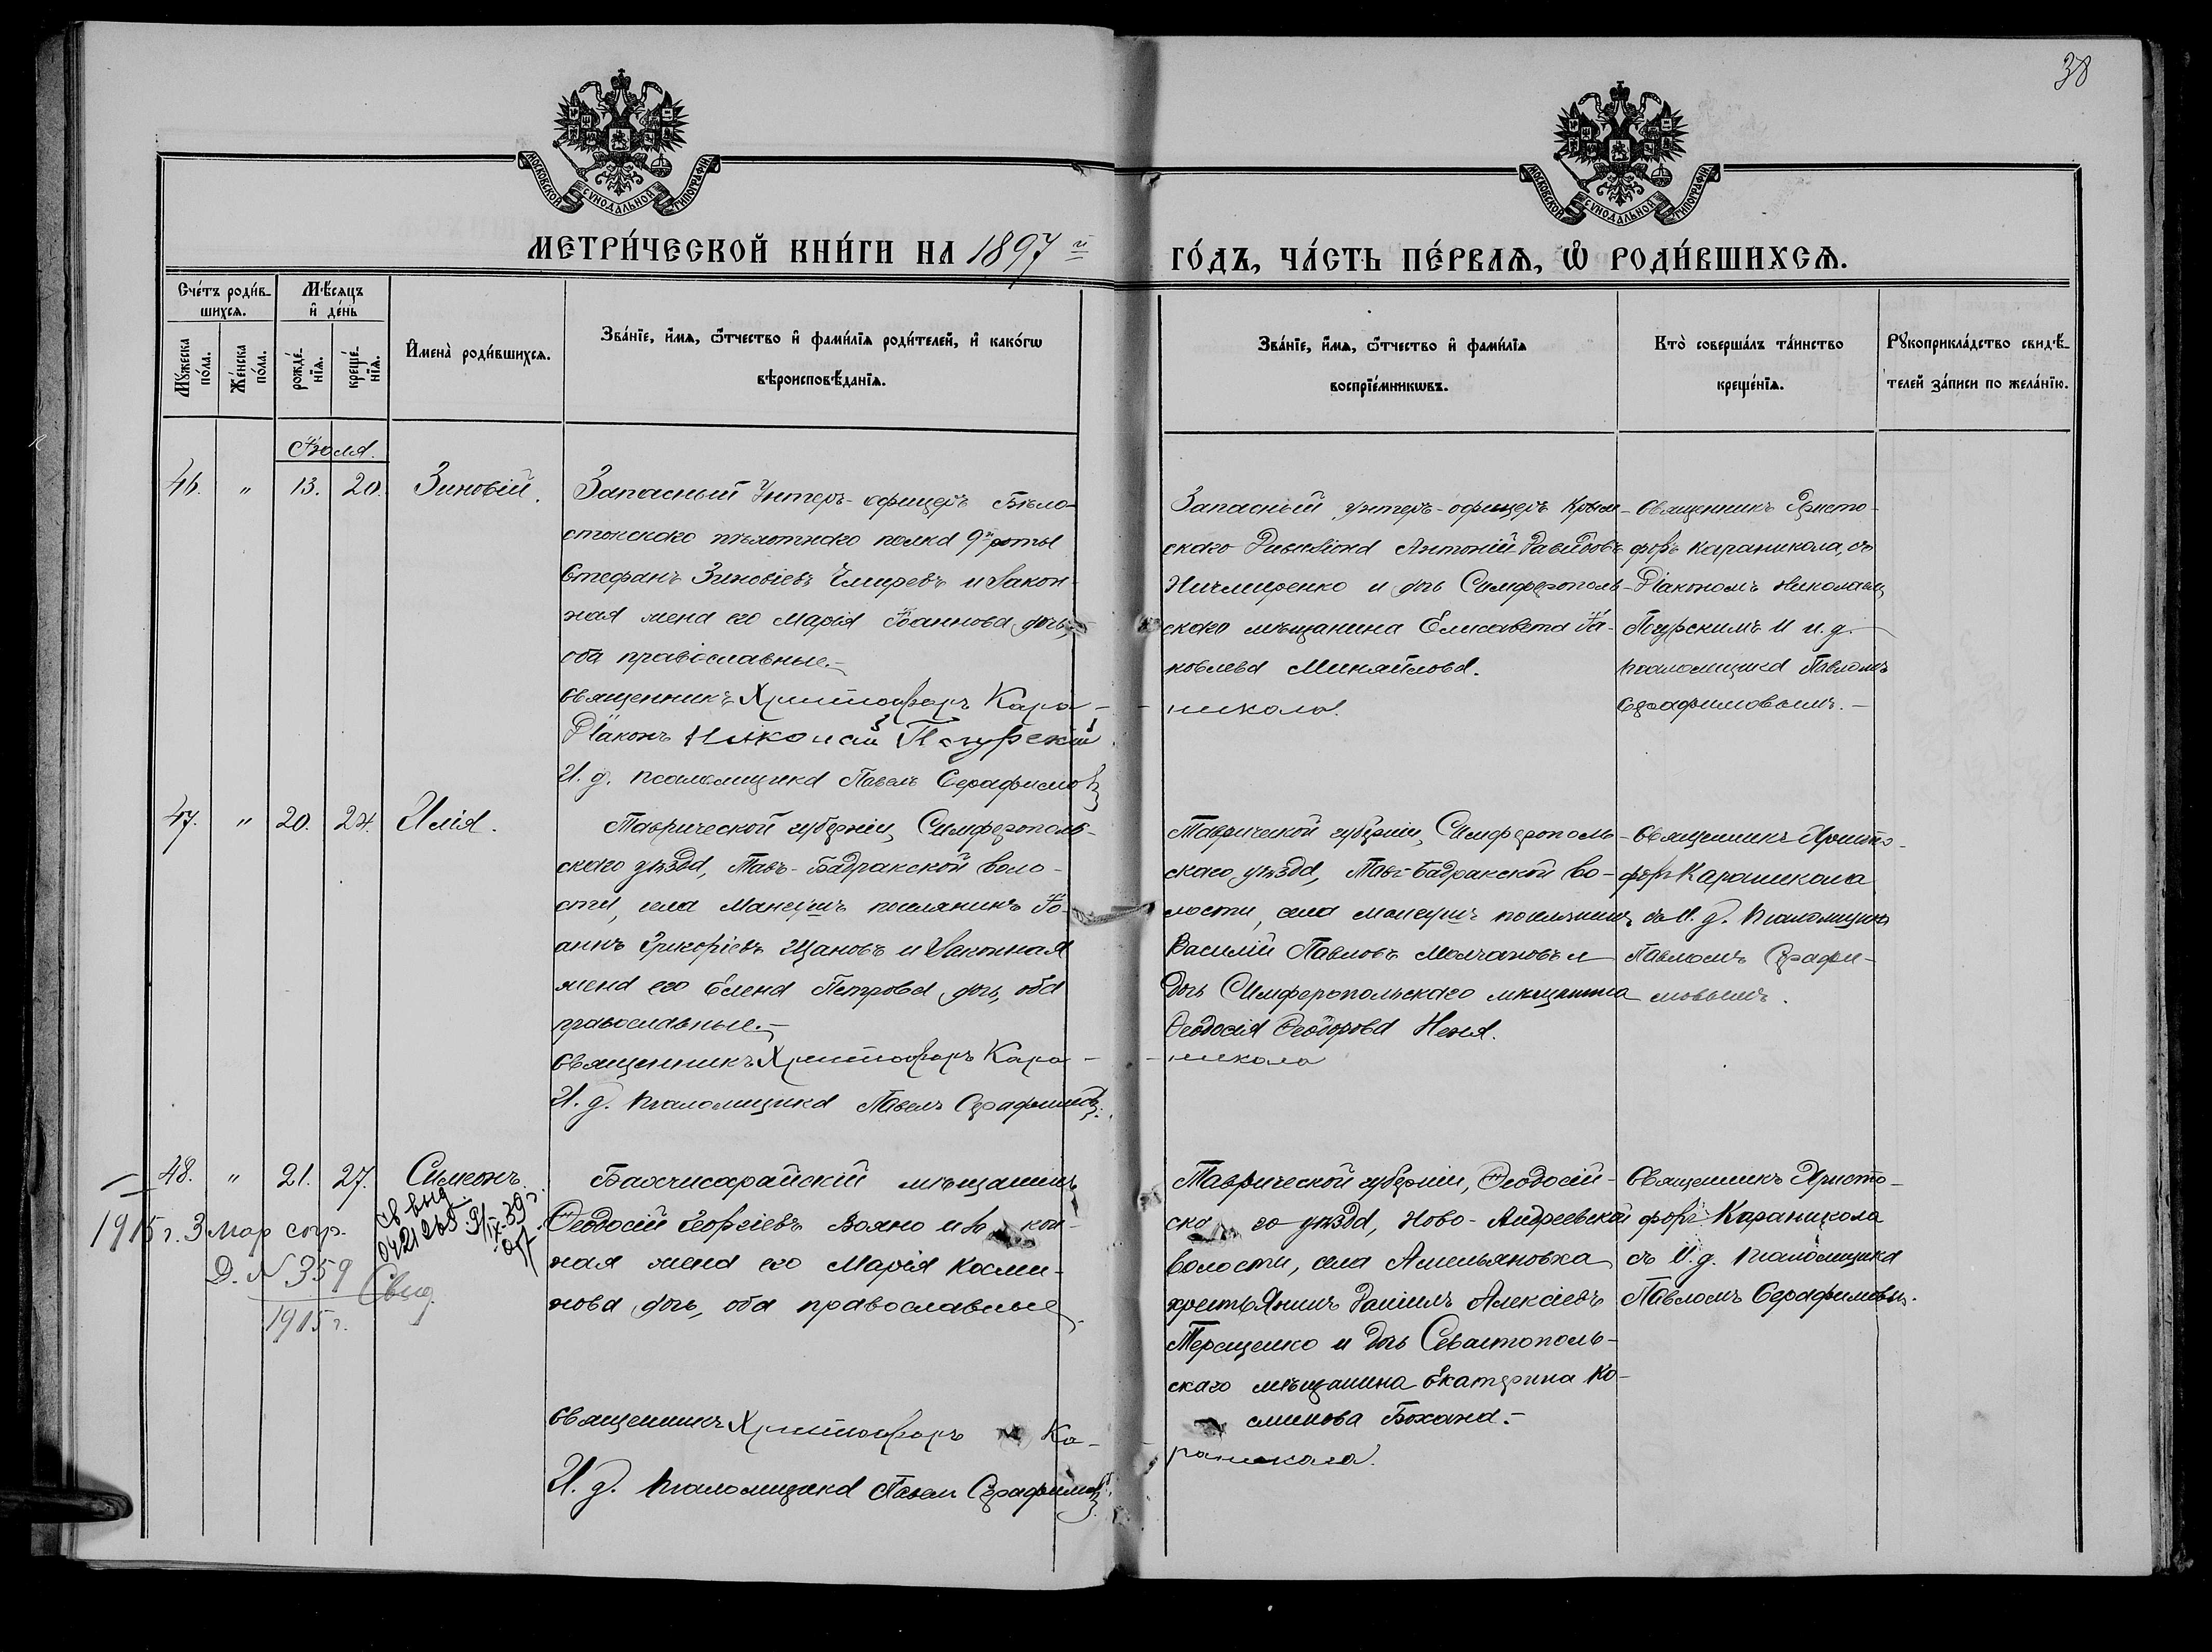 38
МОСКОВСКОЙ СѴНОДАЛЬНОЙ ТИПОГРАФІИ
МОСКОВСКОЙ СѴНОДАЛЬНОЙ ТИПОГРАФІИ
МЕТРИ́ЧЕСКОЙ КНИ́ГИ НА 1897 й
ГО́ДЪ, ЧА́СТЬ ПЕ́РВАѦ, Ѡ РОДИ́ВШИХСѦ.
Сче́тъ роди́в-
шихсѧ.
Мꙋ́жеска
по́ла.
Же́нска
по́ла.
Мѣ́сѧцъ
и҆ де́нь
рожде́-
нїѧ.
креще́-
нїѧ.
И҆мена̀ роди́вшихсѧ.
Зва́нїе, и҆́мѧ, ѻ҆́тчество и҆ фами́лїѧ роди́телей, и҆ како́гѡ
вѣроисповѣ́данїѧ.
Зва́нїе, и҆́мѧ, ѻ҆́тчество и҆ фами́лїѧ
воспрїе́мникѡвъ.
Кто̀ соверша́лъ та́инство
креще́нїѧ.
Рꙋкоприкла́дство свидѣ́-
телей за́писи по жела́нїю.
Іюля.
46. " 13. 20. Зиновій.
Запасный Унтеръ-офицеръ Бѣло-
стокскаго пѣхотнаго полка 9й роты
Стефанъ Зиновіевъ Чмиревъ и закон-
ная жена его Марія Іоаннова дочь,
оба православные.-
Священникъ Христофоръ Кара-
никола.
Діаконъ Николай Погурскій
И. д. псаломщика Павелъ Серафимовъ
Запасный унтеръ-офицеръ Крым-
скаго Дивизіона Антоній Давидовъ
Ничмиренко и дочь Симферополь-
скаго мѣщанина Елисавета Іа-
ковлева Михайлова.
Священникъ Христо-
форъ Караникола, съ
Діакономъ Николаемъ
Погурскимъ и и. д.
псаломщика Павломъ
Серафимовымъ.-
47. " 20. 24. Илія.
Таврической губерніи, Симферополь-
скаго уѣзда, Тавъ-Бадракской воло-
сти, села Мангушъ поселянинъ Іо-
аннъ Григоріевъ Щановъ и законная
жена его Елена Петрова дочь, оба
православные.-
Священникъ Христофоръ Кара-
никола
И. д. псаломщика Павелъ Серафимовъ.
Таврической губерніи, Симферополь-
скаго уѣзда, Тавъ-Бадракской во-
лости, села Мангушъ поселянинъ
Василій Павловъ Молчановъ и
дочь Симферопольскаго мѣщанина
Ѳеодосія Ѳеодорова Неня.
Священникъ Христо-
форъ Караникола
съ И. д. псаломщика
Павломъ Серафи-
мовымъ.
48. " 21. 27. Симеонъ.
св выд
0421265 9/IX-39 г.
1915 г. 3 мар согр.
Д. № 359
1915 г.
Свид.
Бахчисарайскій мѣщанинъ
Ѳеодосій Георгіевъ Вояно и за кон-
ная жена его Марія Косми-
нова дочь, оба православные.
Священникъ Христофоръ Ка-
раникола.
И. д. псаломщика Павелъ Серафимовъ.
Таврической губерніи, Ѳеодосій-
ска го уѣзда, Ново-Андреевской
волости, села Амельяновка
крестьянинъ Даніилъ Алексіевъ
Терещенко и дочь Севастополь-
скаго мѣщанина Екатерина Ко-
смикова Бохана.-
Священникъ Христо-
форъ Караникола
съ И. д. псаломщика
Павломъ Серафимовымъ.